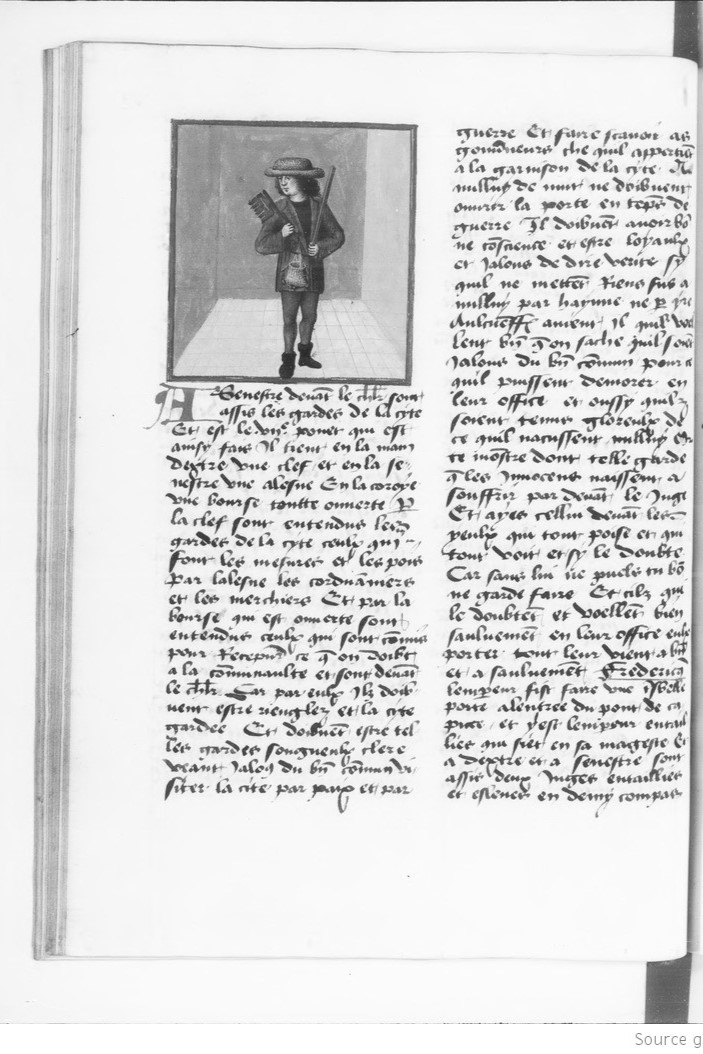 A Senestre devāt le chl̄r sont
assis les gardes de la cyte
Et est le .vii.e ponet qui est
ainsy fais Il tient en la main
dextre vne clef et en la se-
nestre vne alesne En la coroye
vne bourse toutte ouuerte p̄
la clef sont entendus les
gardes de la cyte ceulx qui
sont les mesures et les pois
par lalesne les corduāniers
et les merchiers Et par la
bourse qui est ouuerte sont
entendus ceulx qui sont cōmis
pour Recepuoir ce q̄ on doibt
a la cōmunaulte et sont deuāt
le chl̄r. Car par eulx Ilz doib-
uent estre rieuglez et la cyte
gardee Et doibuent estre tel
les gardes songneulx clere
veant Jaloux du bn̄ cōmun vi
siter la cite par paix et par
guerre Et faire scauoir as
gouuerneurs che quil appertiēt
a la garnison de la cyte
nulluy de nuit ne doibuent
ouurir la porte en tēps de
guerre Il doibuēt auoir bō
ne cōscience et estre loyaulx
et Jalous de dire verite sy
quil ne mettēt Riens sus a
nulluy par hayine ne p̄ yre
auient Il quil voel
lent bn̄ q̄ on sache quil soiēt
Jalous du bn̄ cōmun pour ce
quil puissent demorer en
leur office et oussy quilz
soient tenus gloreulx de
ce quil nacussent nulluy
te monstre dont telle garde
q̄ les Innocens naissent a
souffrir par deuāt le Juge
Et ayes cellui deuāt les
yeulx qui tout poise et qui
tout voit et sy le doubte
Car sans lui ne puels tu bō
ne garde faire Et cilz qui
le doubtēt et voellēt bien
sauluemēt en leur office eulx
porter tout leur vient a bn̄
et a sauluemēt Fredericq̄
lempeur fist faire vne
porte alentree du pont de ca
pue et yest lempeur entail
lies qui siet en sa mageste Et
a dextre et a senestre sont
assis deux Juges entaillies
et esleues en demy compas
Source g